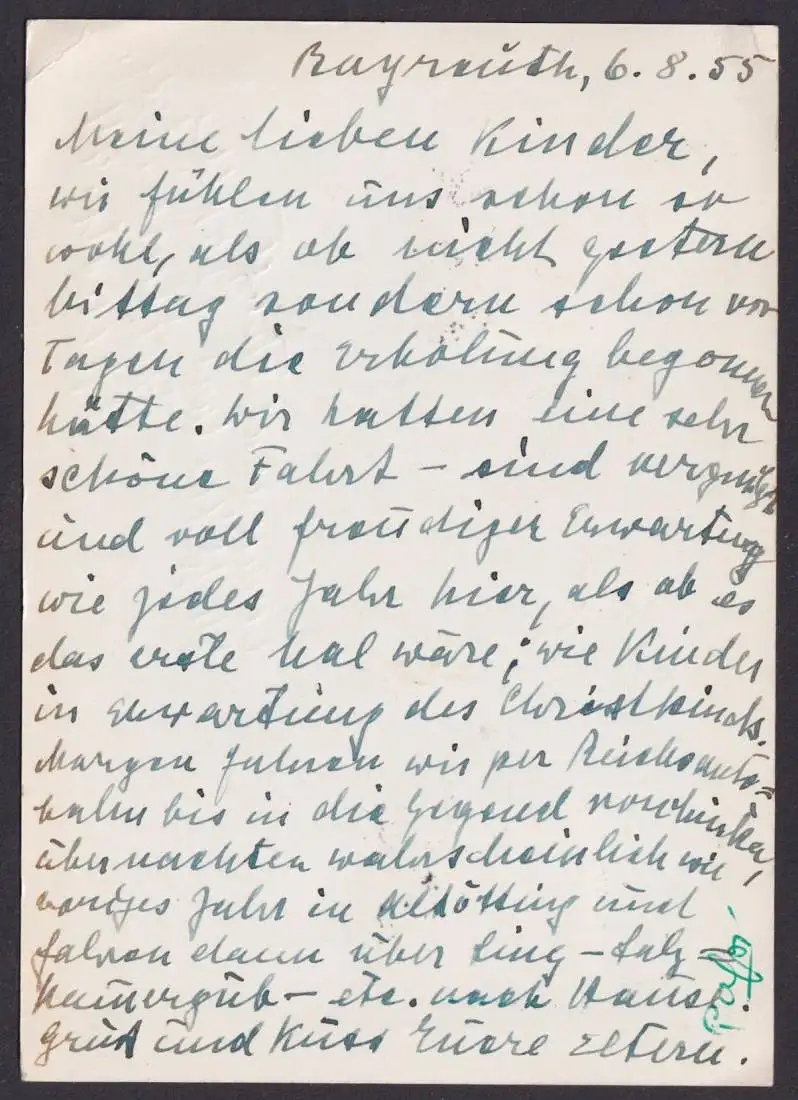 Bayreuth, 6. 8. 55
Meine lieben Kinder,
wir fühlen uns schon so
wohl, als ob nicht gestern
Mittag sondern schon vor
Tagen die Erholung begonnen
hätte. Wir hatten eine sehr
schöne Fahrt – sind vergnügt
und voll freudiger Erwartung
wie jedes Jahr hier, als ob es
das erste Mal wäre; wie Kinder
in Erwartung des Christkinds.
Morgen fahren wir per Reichsauto=
bahn bis in die Gegend
übernachten wahrscheinlich wie
voriges Jahr in Altötting und
fahren dann über Ling – Salz –
kammergub – etc. nach Hause.
Gruß und Kuss Eure Eltern.